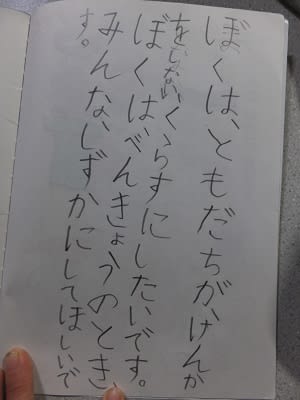 ぼくは、ともだちがけんか
をしないくらすにしたいです。
ぼくはべんきょうのとき、
みんなしずかにしてほしいで
す。